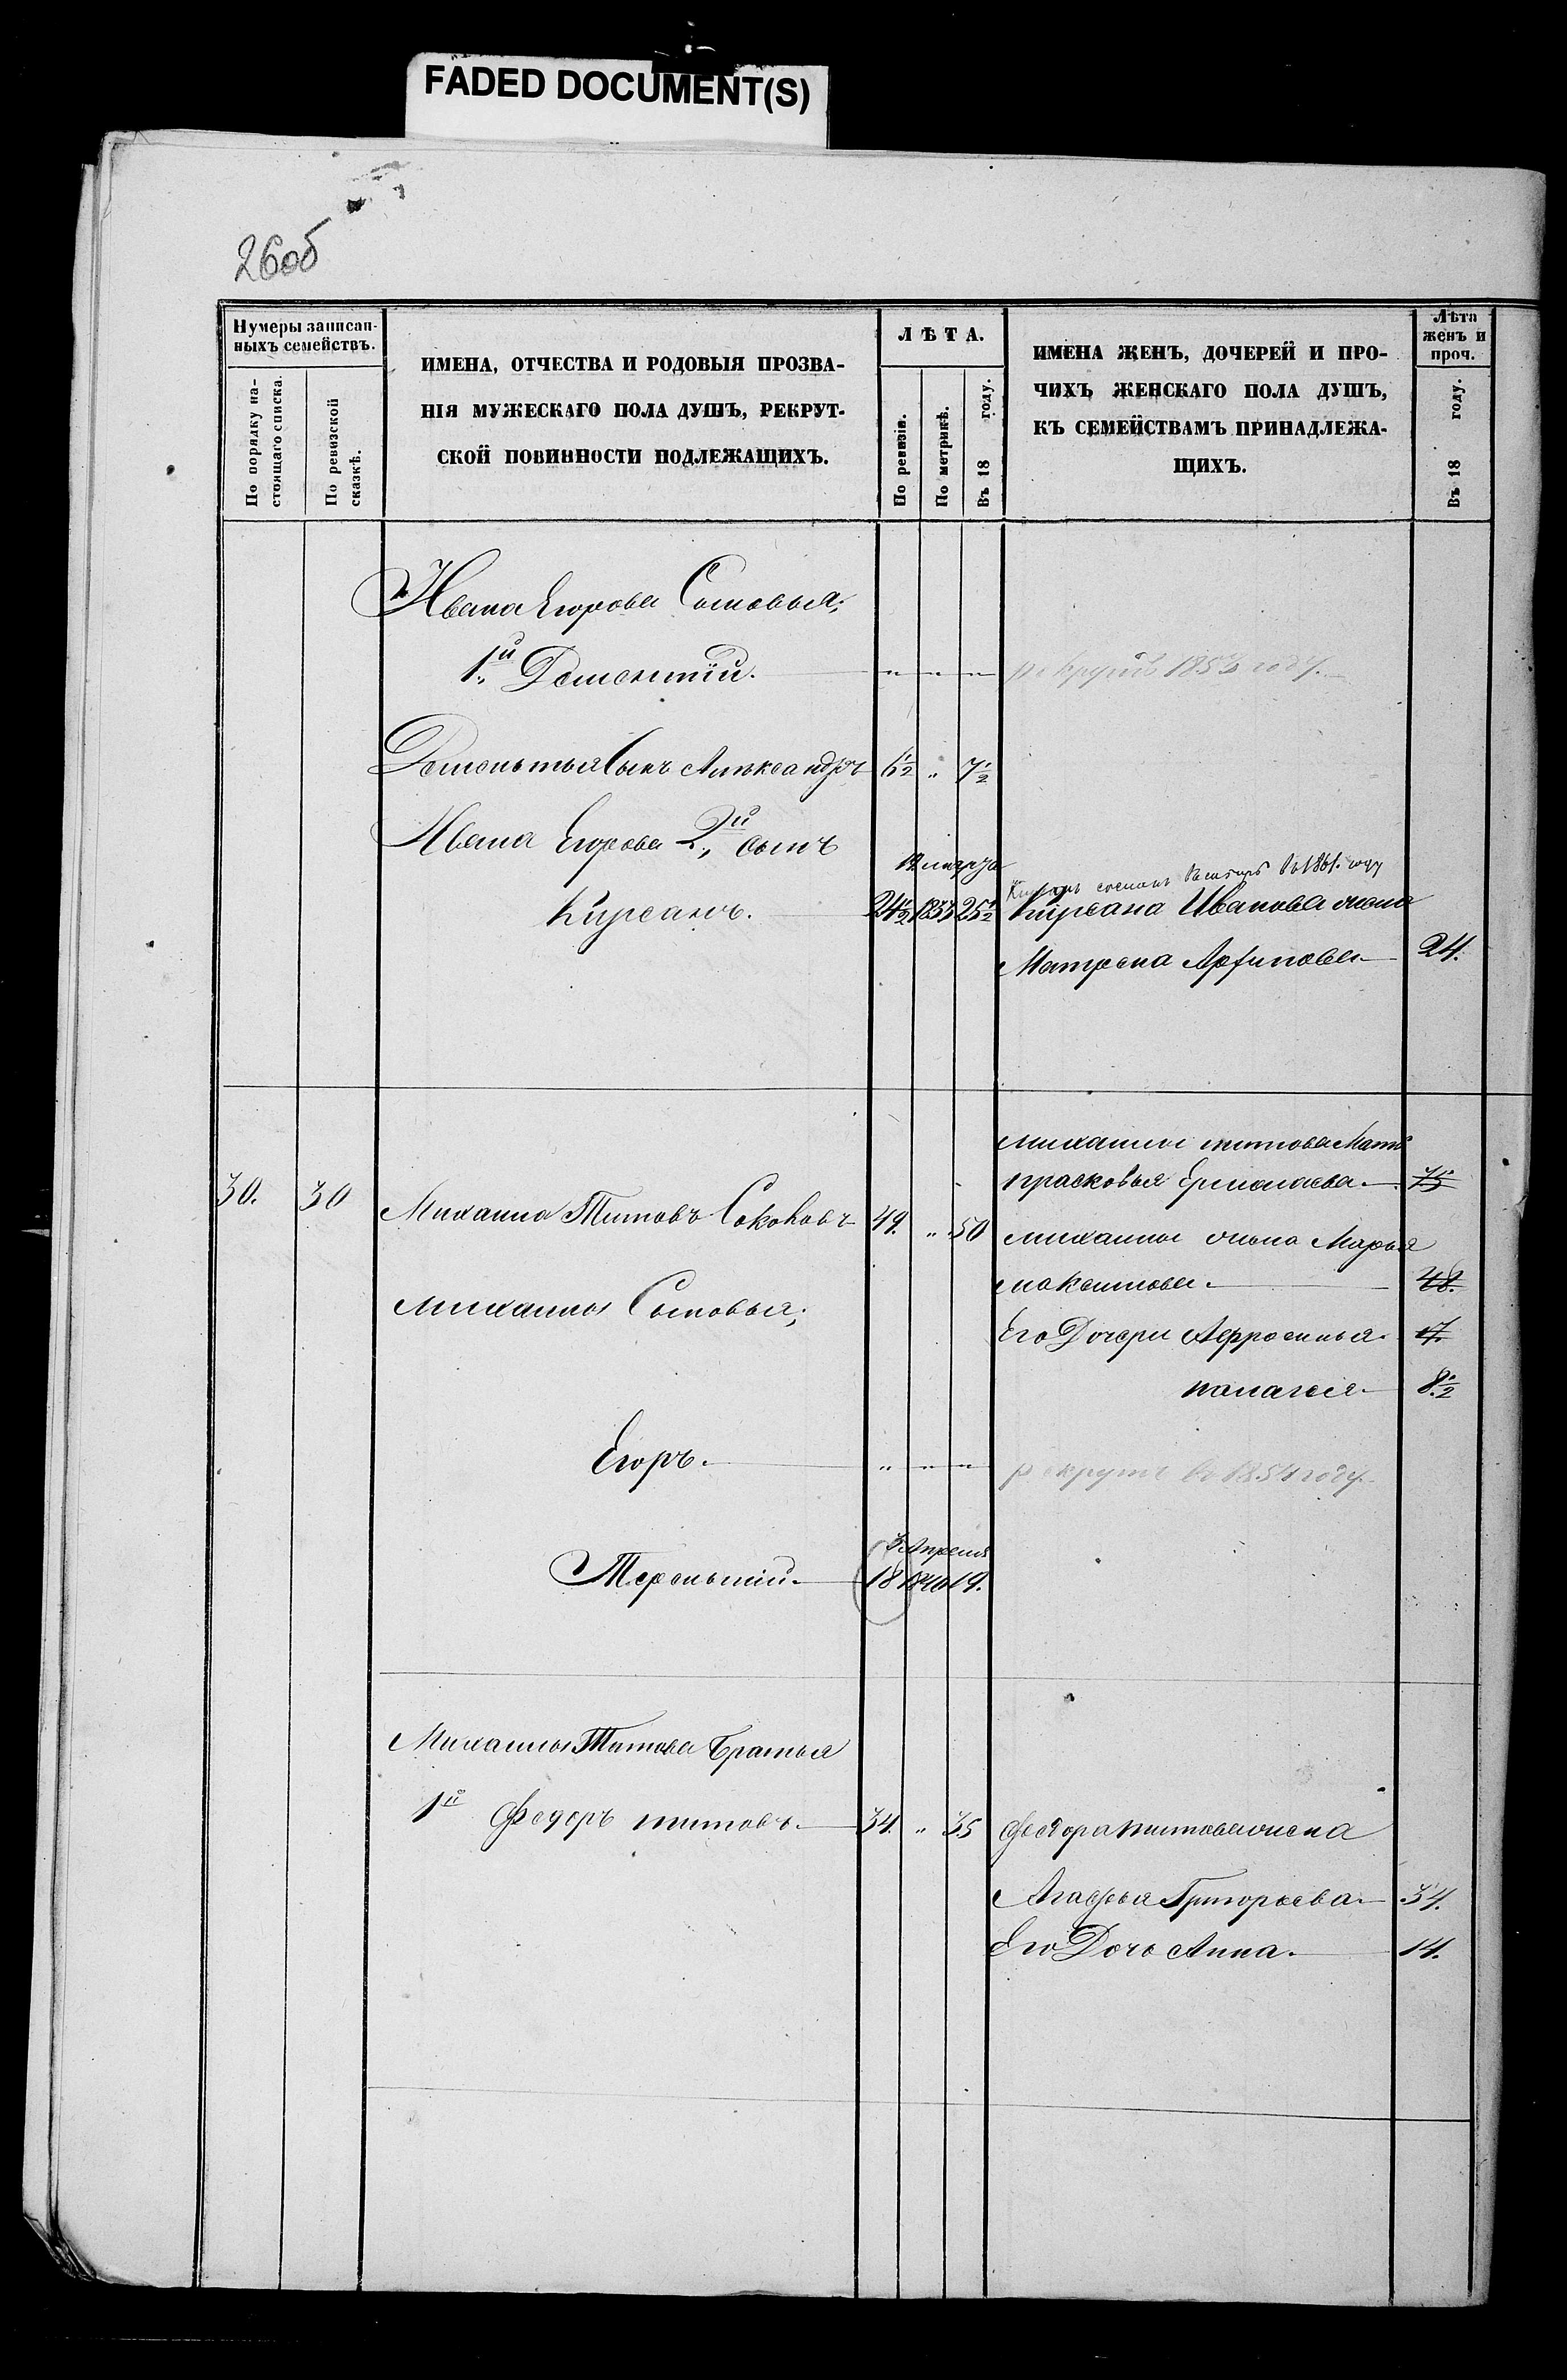 FADED DOCUMENT(S)
26об
Нумеры записан-
ныхъ семействъ.
По порядку на-
стоящаго списка.
По ревизской
сказкѣ.
ИМЕНА, ОТЧЕСТВА И РОДОВЫЯ ПРОЗВА-
НІЯ МУЖЕСКАГО ПОЛА ДУШЪ, РЕКРУТ-
СКОЙ ПОВИННОСТИ ПОДЛЕЖАЩИХЪ.
ЛѢТА.
По ревизіи.
По метрикѣ.
Въ 18 году.
ИМЕНА ЖЕНЪ, ДОЧЕРЕЙ И ПРО-
ЧИХЪ ЖЕНСКАГО ПОЛА ДУШЪ,
КЪ СЕМЕЙСТВАМЪ ПРИНАДЛЕЖА-
ЩИХЪ.
Лѣта
женъ и
проч.
Въ 18 году.
Ивана Егорова Сыновья;
1й Дементій. " " " рекрутъ году.
Дементья Сынъ Александръ 6½ " 7½
Ивана Егорова 2й сынъ
12 марта
въ 1861. году
Кирсанъ. 24½ 1833 25½ Кирсана Иванова жена
Матрена Архипова 24.
Михаилы титова Мать
прасковья Ермолаева. 75
30. 30 Михаила Титовъ 49. " 50 михаилы жена Марья
максимова. 48.
михаилы Сыновья;
Его Дочери Аффросинья. 17.
палагея 8½
Егоръ. " " " рекрутъ въ 1854 году.
3 Апреля
Терентий. 18 1840 19.
Михаилы Титова Братья
1й Федоръ титовъ. 34. " 35 федора титова жена
Агафья Григорьева 34.
Его Дочь Анна. 14.